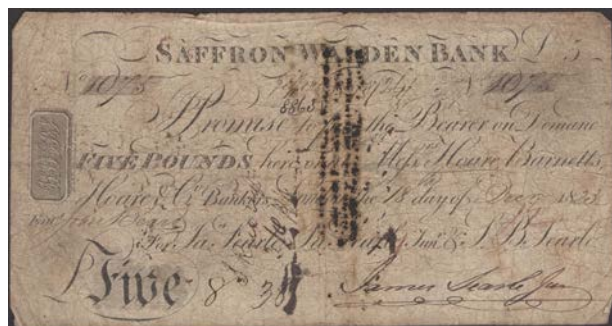 SAFFRON WALDEN BANK £5
No. 1075 No. 1075
8863
I Promise to the Bearer on Demand
FIVE POUNDS here or Messrs. Hoare Barnetts
Hoare & Co. Bankers the 18 day of Decr. 1823
For Ja. Searle, Ja. Searle Junr. & S. B. Searle
£ Five 8 38 James Searle Jun